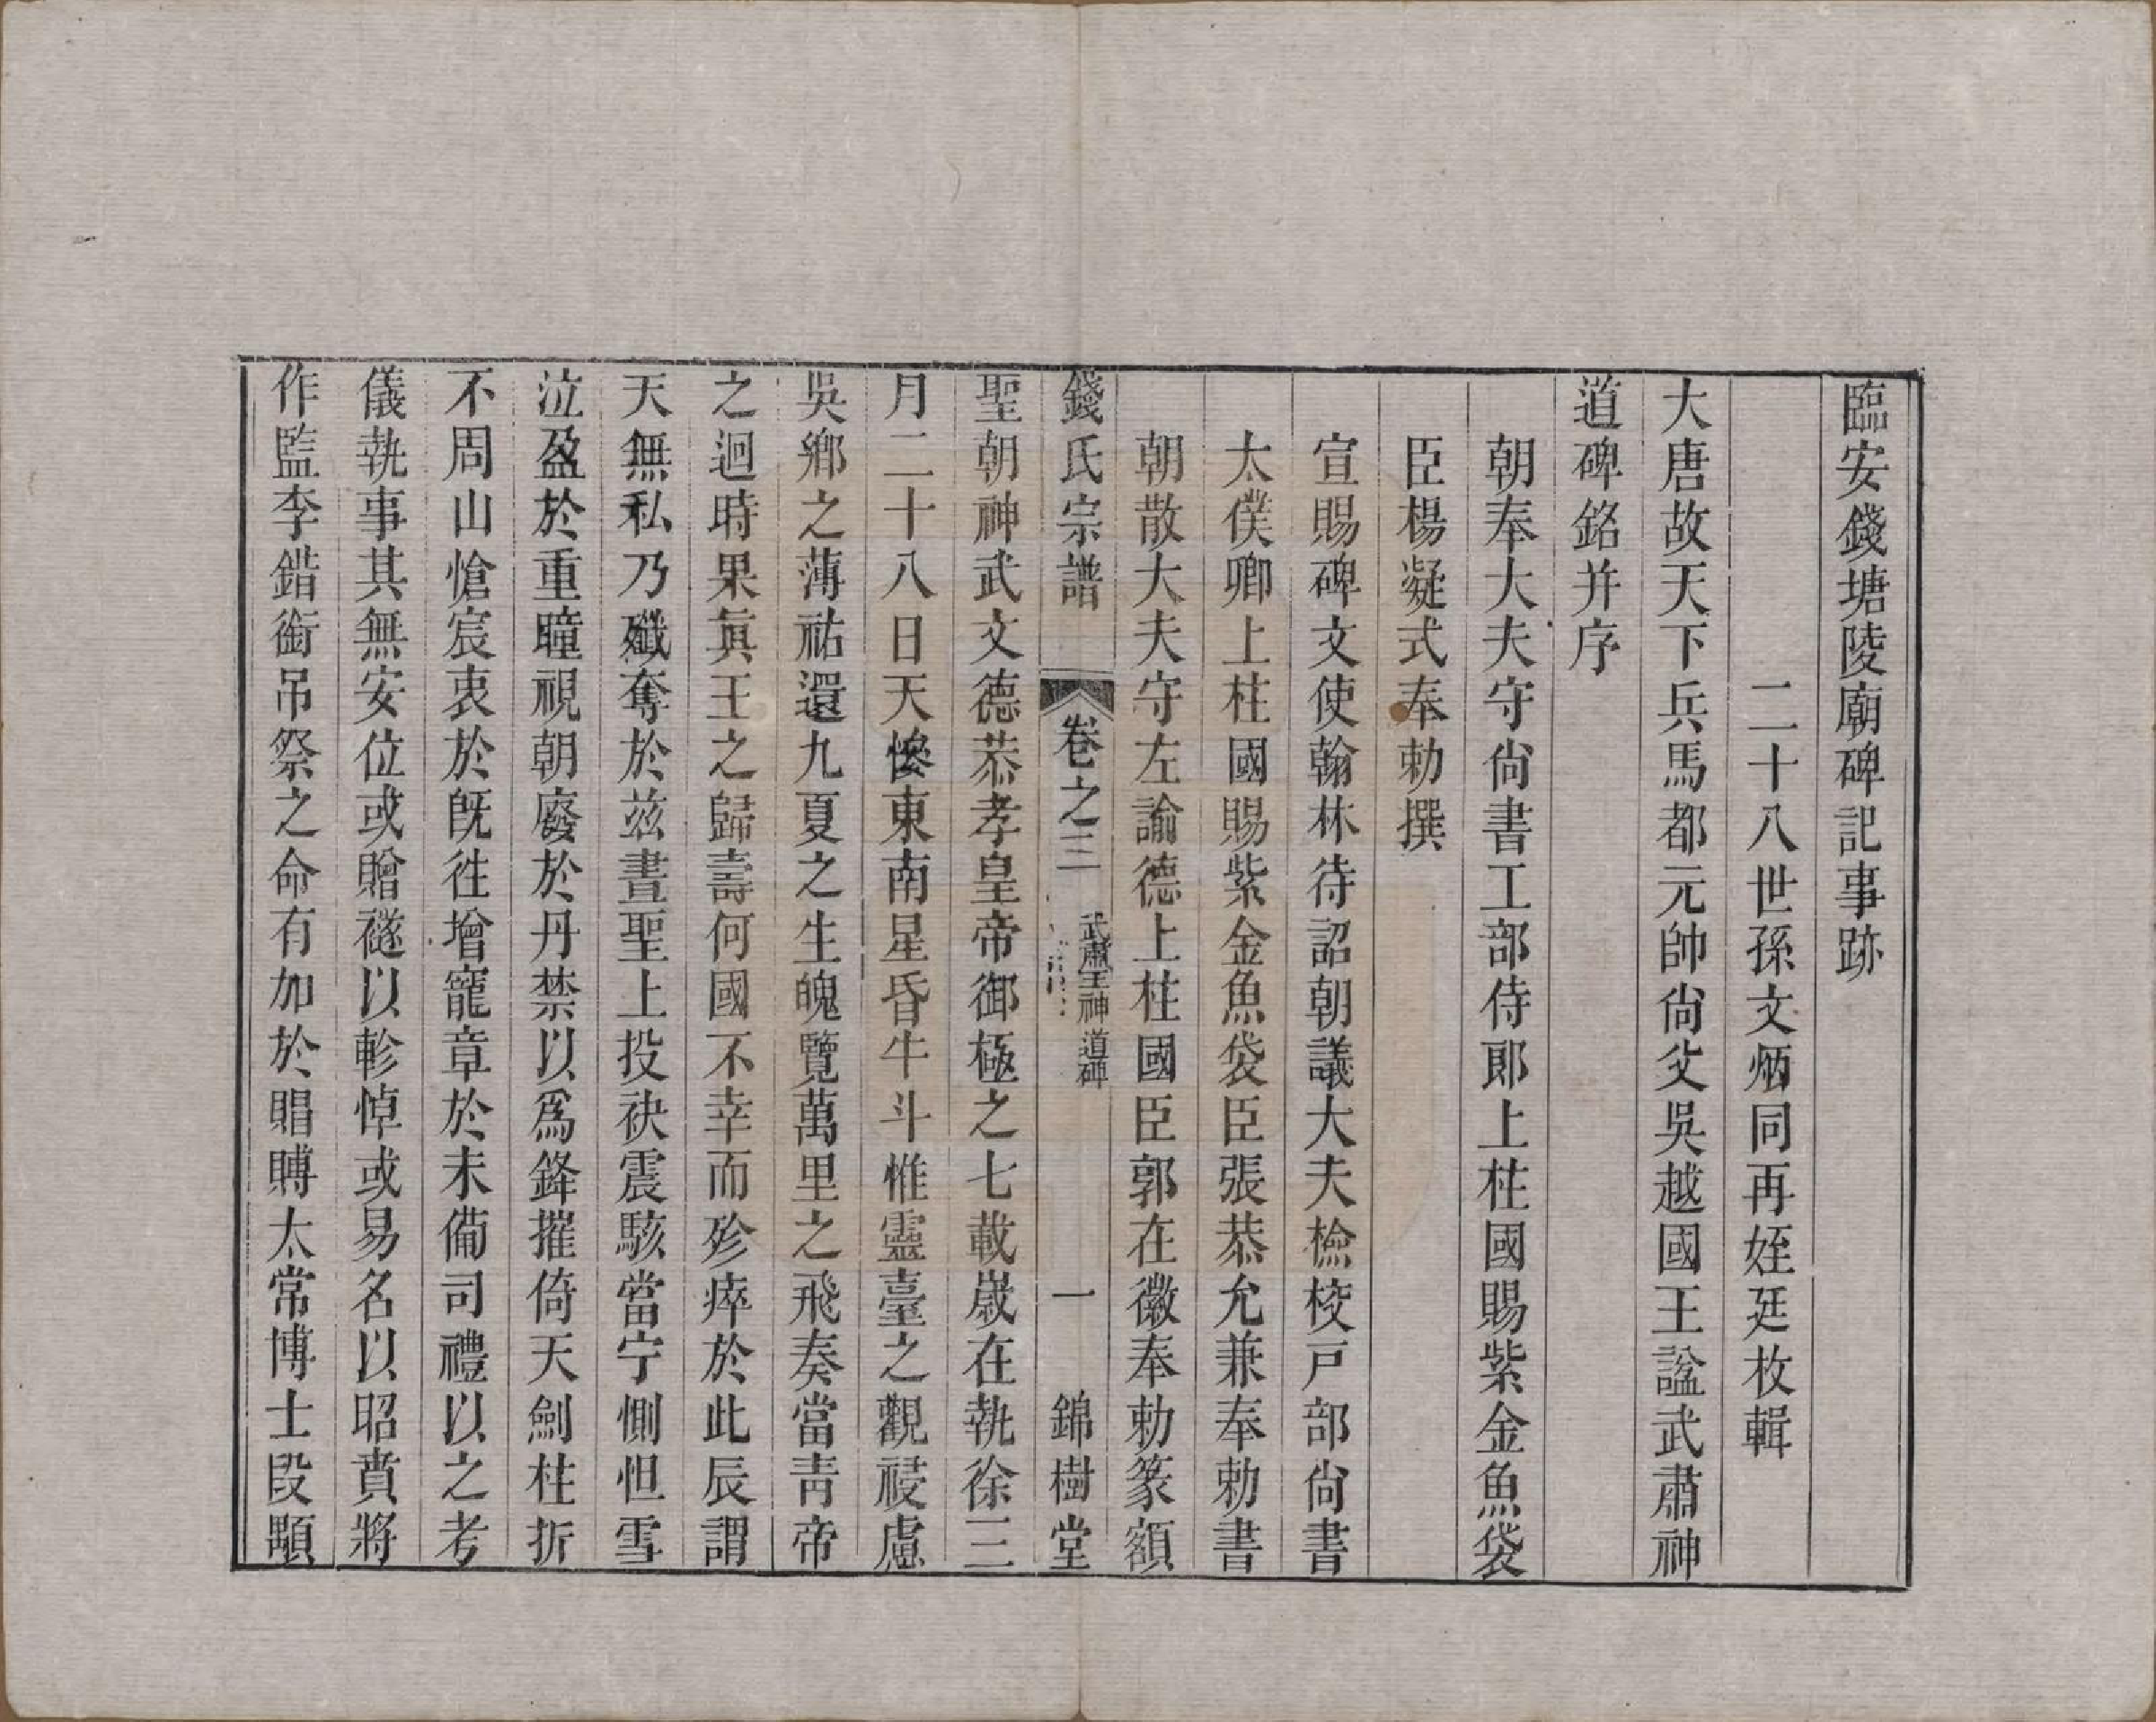 臨安錢塘陵廟碑記事跡
二十八世孫文炳同再姪廷枚輯
大唐故天下兵馬都元帥尙父吳越國王諡武肅神
道碑銘并序
朝奉大夫守尙書工部侍郞上柱國賜紫金魚袋
臣楊凝式奉勅撰
宣賜碑文使翰林待詔朝議大夫檢校戸部尙書
太僕卿上柱國賜紫金魚袋臣張恭允兼奉勅書
朝散大夫守左諭德上柱國臣郭在徽奉勅篆額
錢氏宗譜 卷之三 武肅王神道碑 一 錦樹堂
聖朝神武文德恭孝皇帝御極之七載歲在執徐三
月二十八日天慘東南星昏牛斗惟靈臺之觀祲慮
吳鄉之薄祐還九夏之生魄覽萬里之飛奏當靑帝
之迴時果眞王之歸壽何國不幸而殄瘁於此辰謂
天無私乃殲奪於兹晝聖上投袂震駭當宁惻怛雪
泣盈於重瞳視朝廢於丹禁以爲鋒摧倚天劍柱折
不周山愴宸衷於旣徃增寵章於未備司禮以之考
儀執事其無安位或贈襚以軫悼或易名以昭賁將
作監李鍇銜吊祭之命有加於賵賻太常博士段顒